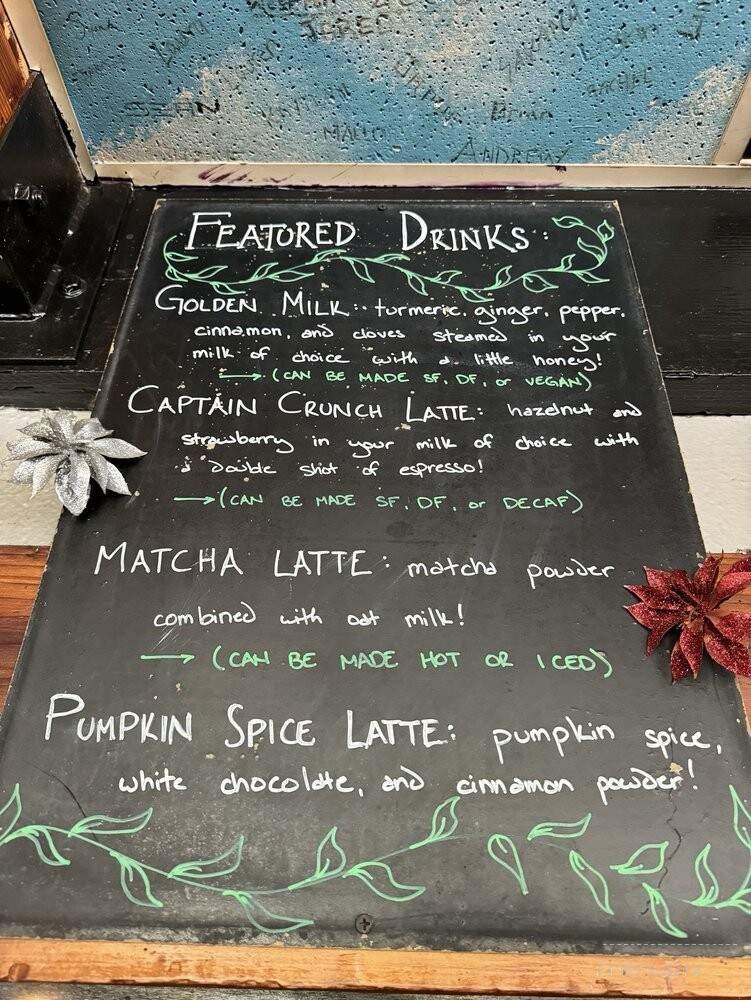 JERED
SEAN
MALLO
Brian
ANDREW
FEATURED DRINKS:
GOLDEN MILK: turmeric, ginger, pepper,
cinnamon, and cloves steamed in your
milk of choice with a little honey!
→ (CAN BE MADE SF, DF, or VEGAN)
CAPTAIN CRUNCH LATTE: hazelnut and
strawberry in your milk of choice with
a double shot of espresso!
→ (CAN BE MADE SF, DF, or DECAF)
MATCHA LATTE: matcha powder
combined with oat milk!
→ (CAN BE MADE HOT OR ICED)
PUMPKIN SPICE LATTE: pumpkin spice,
white chocolate, and cinnamon powder!